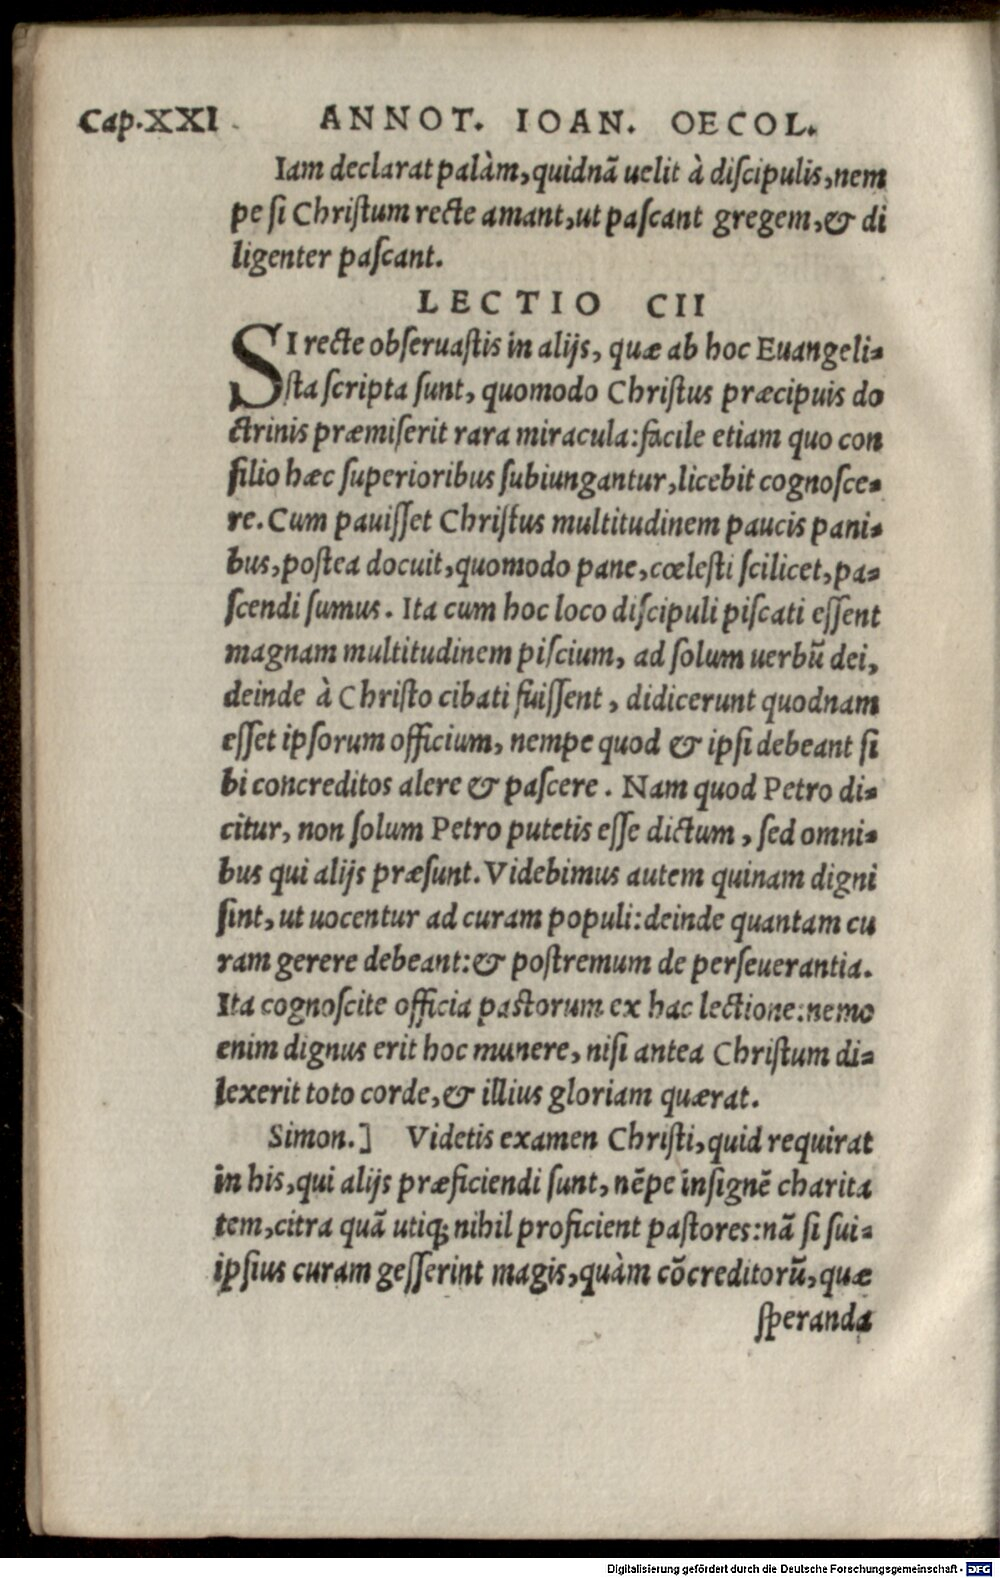 Cap.XXI. ANNOT. IOAN. OECOL.
Iam declarat palàm, quidnã uelit à diſcipulis, nem
pe ſi Chriſtum recte amant, ut paſcant gregem, & di
ligenter paſcant.
LECTIO CII
SI recte obſeruaſtis in alijs, quæ ab hoc Euangeli-
ſta ſcripta ſunt, quomodo Chriſtus præcipuis do
ctrinis præmiſerit rara miracula: facile etiam quo con
ſilio hæc ſuperioribus ſubiungantur, licebit cognoſce-
re. Cum pauiſſet Chriſtus multitudinem paucis pani-
bus, poſtea docuit, quomodo pane, cœleſti ſcilicet, pa-
ſcendi ſumus. Ita cum hoc loco diſcipuli piſcati eſſent
magnam multitudinem piſcium, ad ſolum uerbũ dei,
deinde à Chriſto cibati fuiſſent, didicerunt quodnam
eſſet ipſorum officium, nempe quod & ipſi debeant ſi
bi concreditos alere & paſcere. Nam quod Petro di-
citur, non ſolum Petro putetis eſſe dictum, ſed omni-
bus qui alijs præſunt. Videbimus autem quinam digni
ſint, ut uocentur ad curam populi: deinde quantam cu
ram gerere debeant: & poſtremum de perſeuerantia.
Ita cognoſcite officia paſtorum ex hac lectione: nemo
enim dignus erit hoc munere, niſi antea Chriſtum di-
lexerit toto corde, & illius gloriam quærat.
Simon.] Videtis examen Chriſti, quid requirat
in his, qui alijs præficiendi ſunt, nẽpe inſignẽ charita
tem, citra quã utiq; nihil proficient paſtores: nã ſi ſui-
ipſius curam geſſerint magis, quàm cõcreditorũ, quæ
ſperanda
Digitalisierung gefördert durch die Deutsche Forschungsgemeinschaft - DFG